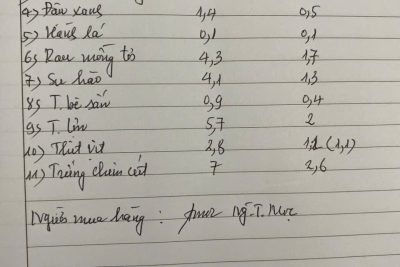 4) Đậu xanh 1,4 0,5
5) Hành lá 0,1 0,1
6) Rau mồng tơi 4,3 1,7
7) Su hào 4,1 1,3
8) T. bê sấn 0,9 0,4
9) T. lợn 5,7 2
10) Thịt vịt 2,8 (1,1)
11) Trứng chim cút 7 2,6
Người mua hàng : Ng. T.